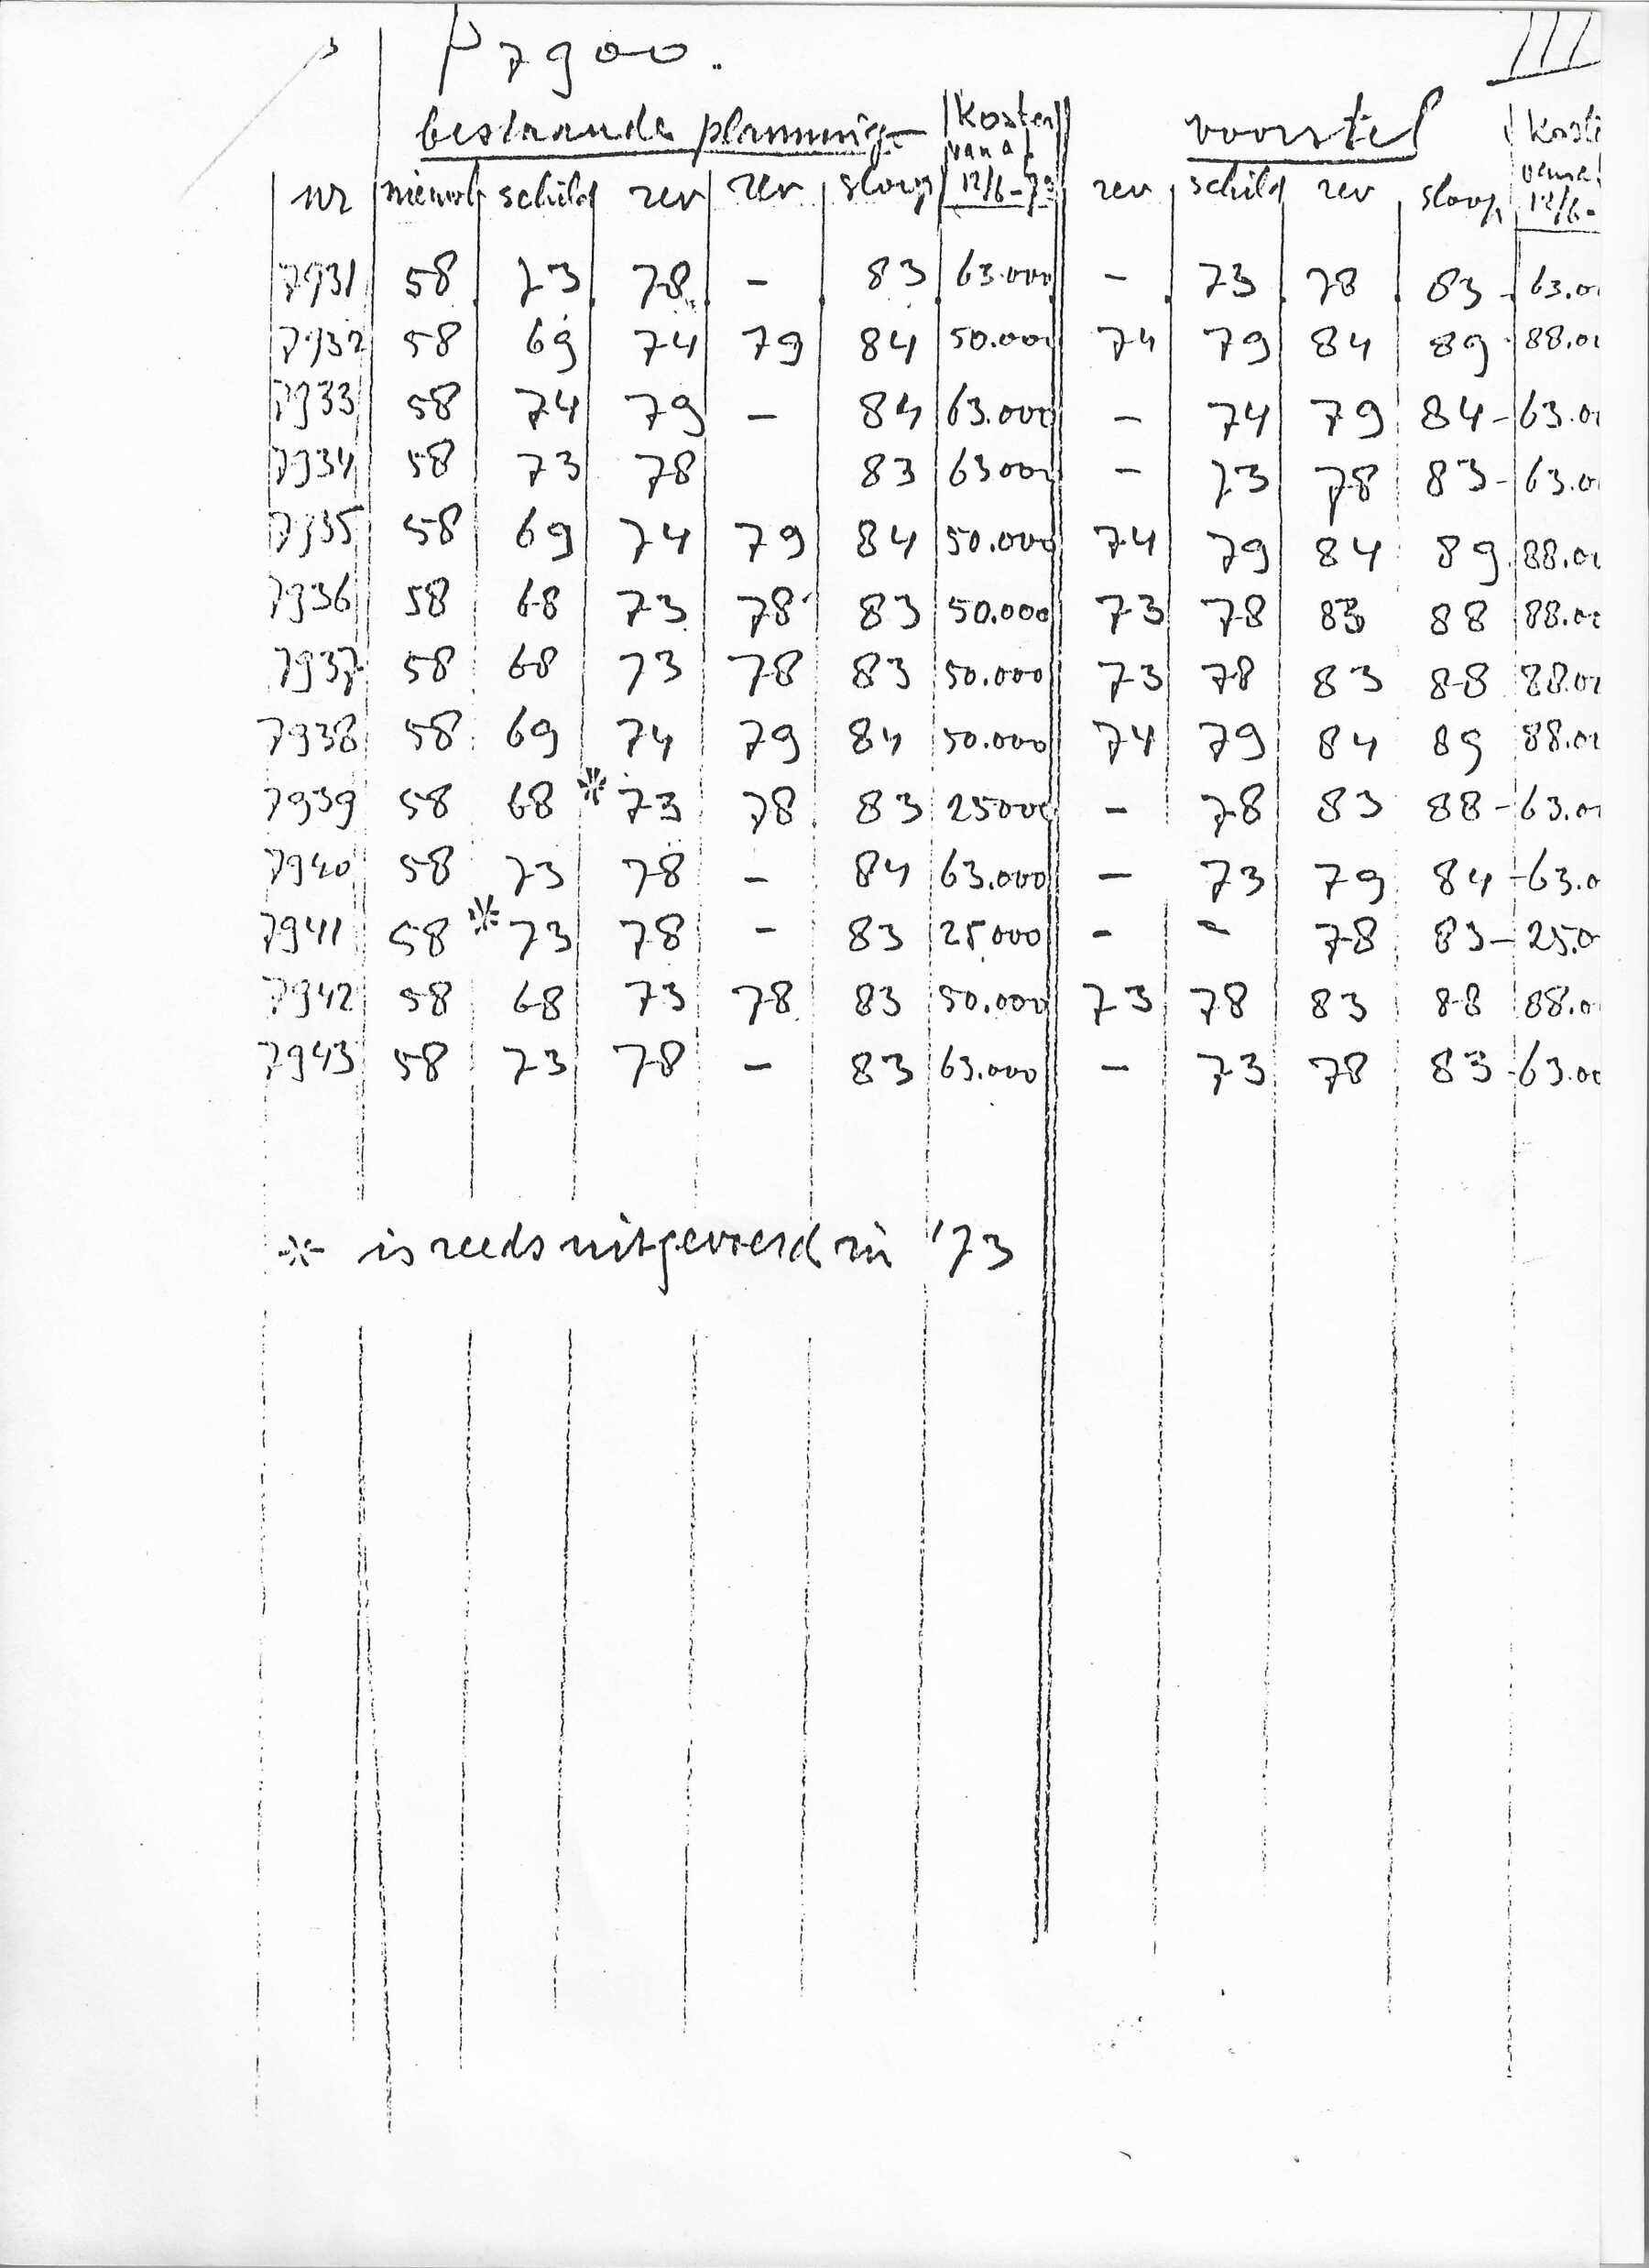 P 7900.
III
bestaande planning
Kosten
voorstel
Kost
vanaf
vanaf
nr nieuwb schild rev rev sloop 12/6-73 rev schild rev sloop 12/6-
7931 58 73 78 - 83 63.000 - 73 78 83 - 63.00
7932 58 69 74 79 84 50.000 74 79 84 89 88.00
7933 58 74 79 - 84 63.000 - 74 79 84 - 63.00
7934 58 73 78 83 63000 - 73 78 83 - 63.0
7935 58 69 74 79 84 50.000 74 79 84 89 88.00
7936 58 68 73 78 83 50.000 73 78 83 88 88.00
7937 58 68 73 78 83 50.000 73 78 83 88 88.00
7938 58 69 74 79 84 50.000 74 79 84 89 88.00
7939 58 68 * 73 78 83 25000 - 78 83 88 - 63.00
7940 58 73 78 - 84 63.000 - 73 79 84 - 63.0
7941 58 * 73 78 - 83 25.000 - - 78 83 - 25.0
7942 58 68 73 78 83 50.000 73 78 83 88 88.00
7943 58 73 78 - 83 63.000 - 73 78 83 - 63.00
* is reeds uitgevoerd in '73